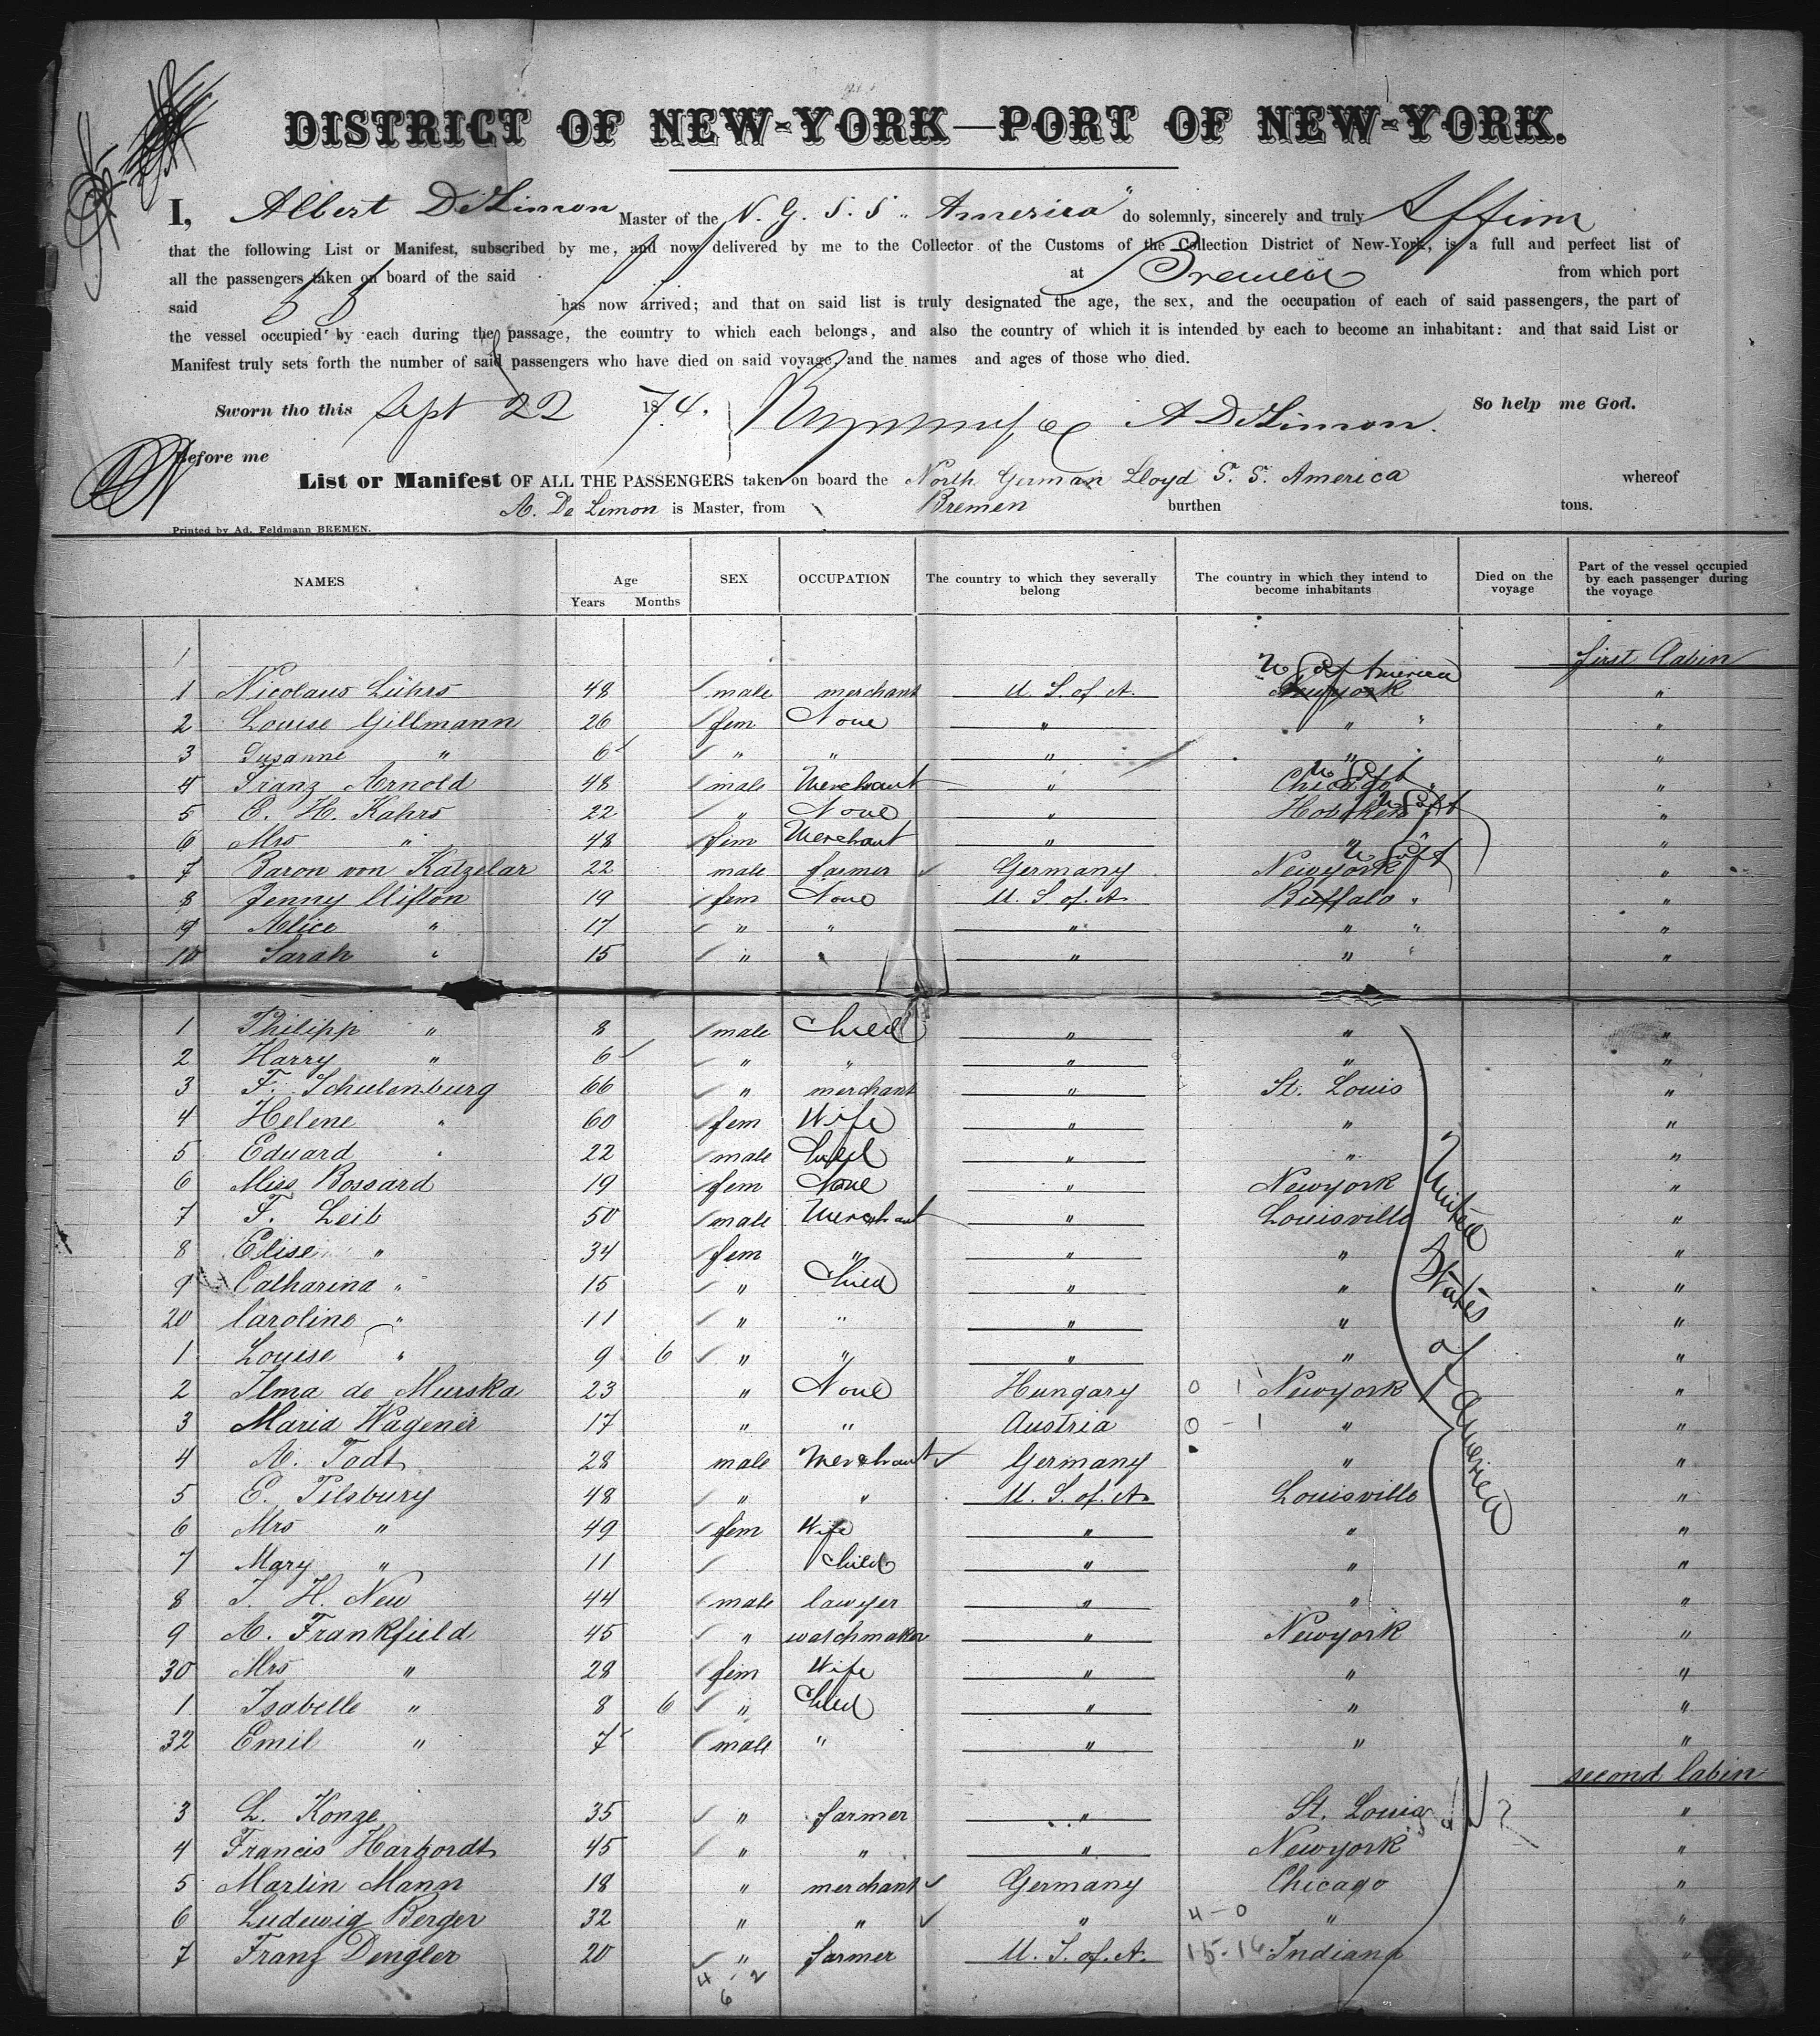 DISTRICT OF NEW-YORK—PORT OF NEW-YORK.
I, Albert DeLimon Master of the N. G. S. S. "America" do solemnly, sincerely and truly Affirm
that the following List or Manifest, subscribed by me, and now delivered by me to the Collector of the Customs of the Collection District of New-York, is a full and perfect list of
all the passengers taken on board of the said at Bremen from which port
said has now arrived; and that on said list is truly designated the age, the sex, and the occupation of each of said passengers, the part of
the vessel occupied by each during the passage, the country to which each belongs, and also the country of which it is intended by each to become an inhabitant: and that said List or
Manifest truly sets forth the number of said passengers who have died on said voyage, and the names and ages of those who died.
Sworn tho this Sept 22 1874. A DeLimon. So help me God.
Before me
List or Manifest OF ALL THE PASSENGERS taken on board the North German Lloyd S. S. America whereof
A. De Limon is Master, from Bremen burthen tons.
Printed by Ad. Feldmann BREMEN.
NAMES Age Years Months SEX OCCUPATION The country to which they severally belong The country in which they intend to become inhabitants Died on the voyage Part of the vessel occupied by each passenger during the voyage
1 first Cabin
U S of America
1 Nicolaus Lührs 48 male merchant U S. of A. Newyork "
2 Louise Gillmann 26 fem None " " " "
3 Susanne " 6 " " " " "
4 Franz Arnold 48 male Merchant " Chicago " "
5 E. H. Kahrs 22 " None " Hoboken "
6 Mrs " 48 fem Merchant " " "
7 Baron von Katzelar 22 male farmer Germany Newyork "
8 Jenny Clifton 19 fem None U. S. of. A. Buffalo " "
9 Alice " 17 " " " " " "
10 Sarah " 15 " " " " " "
1 Philipp " 8 male Child " " "
2 Harry " 6 " " " " "
3 F. Schulenburg 66 " merchant " St. Louis "
4 Helene " 60 fem Wife " " "
5 Eduard " 22 male Child " " "
6 Miss Bossard 19 fem None " Newyork "
7 F. Leib 50 male Merchant " Louisville "
8 Elise " 34 fem " " " "
9 Catharina " 15 " Child " " "
20 Caroline " 11 " " " " "
1 Louise " 9 6 " " " " "
2 Ilma de Murska 23 " None Hungary 0 1 Newyork "
3 Maria Wagener 17 " " Austria 0 - 1 " "
4 A. Todt 28 male Merchant Germany " "
5 E. Pilsbury 48 " " U. S. of. A. Louisville "
6 Mrs " 49 fem Wife " " "
7 Mary " 11 Child " " "
8 J. H. New 44 male lawyer " " "
9 A. Frankfield 45 " watchmaker " Newyork "
30 Mrs " 28 fem Wife " " "
1 Isabelle " 8 6 " Child " " "
32 Emil " 7 male " " " "
United States of America
second Cabin
3 L. Konze 35 " farmer " St. Louis "
4 Francis Harbordt 45 " " " Newyork "
5 Martin Mann 18 " merchant Germany Chicago "
6 Ludewig Berger 32 " " " 4 - 0 " "
7 Franz Dengler 20 " farmer U. S. of. A. 15-16 Indiana "
4 - 2
6